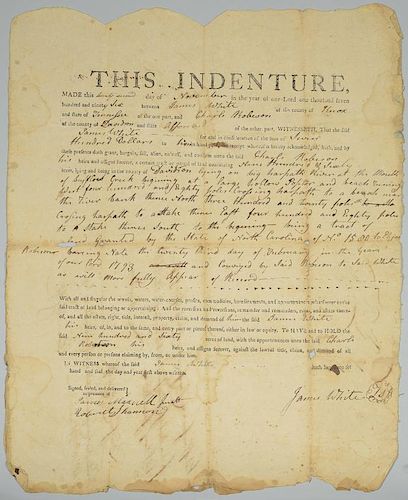 THIS INDENTURE,
MADE this twenty second day of November in the year of our Lord one thousand seven
hundred and ninety Six between James White of the county of Knox
and state of Tennessee of the one part, and Charles Robeson
of the county of Davidson and state of of the other part, WITNESSETH, That the said
James White for and in consideration of the sum of Seven
Hundred Dollars to him the receipt whereof is hereby acknowledged, hath and by
these presents doth grant, bargain, sell, alien, and confirm unto the said Charles Robeson
his heirs and assigns forever, a certain tract or parcel of land containing Nine Hundred & Sixty
acres, lying and being in the county of Davidson lying on big harpath River at the Mouth
of Creek beginning at a large Cotton and running
West four hundred and Eighty poles Crossing harpath to a
the River bank thence North three Hundred and twenty poles
Crossing harpath to a Stake thence East four hundred and Eighty poles
to a Stake thence South to the beginning being a tract of
Land Granted by the State of North Carolina of No 1500 to
Robeson bearing date the twenty third day of February in the year
of our Lord 1793 and conveyed by Said Robeson to Said White
as will more fully Appear of Record
With all and singular the woods, waters, water-courses, profits, commodities, hereditaments, and appurtenances whatsoever to the
said tract of land belonging or appertaining: And the reversion and reversions, remainder and remainders, rents, and issues thereof;
and all the estate, right, title, interest, property, claim, and demand of him the said James White
his heirs, of, in, and to the same, and every part or parcel thereof, either in law or equity. To HAVE and to HOLD the
said Nine hundred and Sixty acres of land, with the appurtenances unto the said Charles
Robeson his heirs, and assigns forever, against the lawful title, claim, and demand of all
and every person or persons claiming by, from, or under him
IN WITNESS whereof the said James White hath set
hand and seal, the day and year first above written.
Signed, sealed, and delivered
in presence of
James White
James Maxwell
Robert Shannon